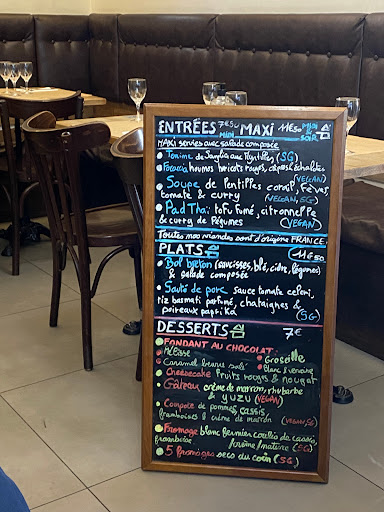 ENTRÉES 7€50 MAXI 11€50 MIDI & SOIR
MIDI
MAXI servies avec salade composée
Terrine de aux (SG)
Focaccia houmos abricots rouges, câpres & échalotes
(VEGAN)
Soupe de lentilles corail, fèves,
tomate & curry (VEGAN, SG)
Pad Thaï tofu fumé, citronnelle
& curry de légumes (VEGAN)
Toutes nos viandes sont d'origine FRANCE
PLATS 11€50
Bol breton (saucisses, blé, cidre, légumes)
& salade composée
Sauté de porc sauce tomate céleri,
riz basmati parfumé, chataignes &
poireaux paprika (SG)
DESSERTS 7€
FONDANT AU CHOCOLAT:
Groseille
Caramel beurre salé Blanc &
Cheesecake fruits rouges & nougat
Gâteau crème de marron, rhubarbe
& yuzu (VEGAN)
Compote de pommes, cassis,
framboises & crème de marron (VEGAN, SG)
Fromage blanc fermier coulis de cassis,
framboise /crème/nature (SG)
5 fromages secs du coin (SG)